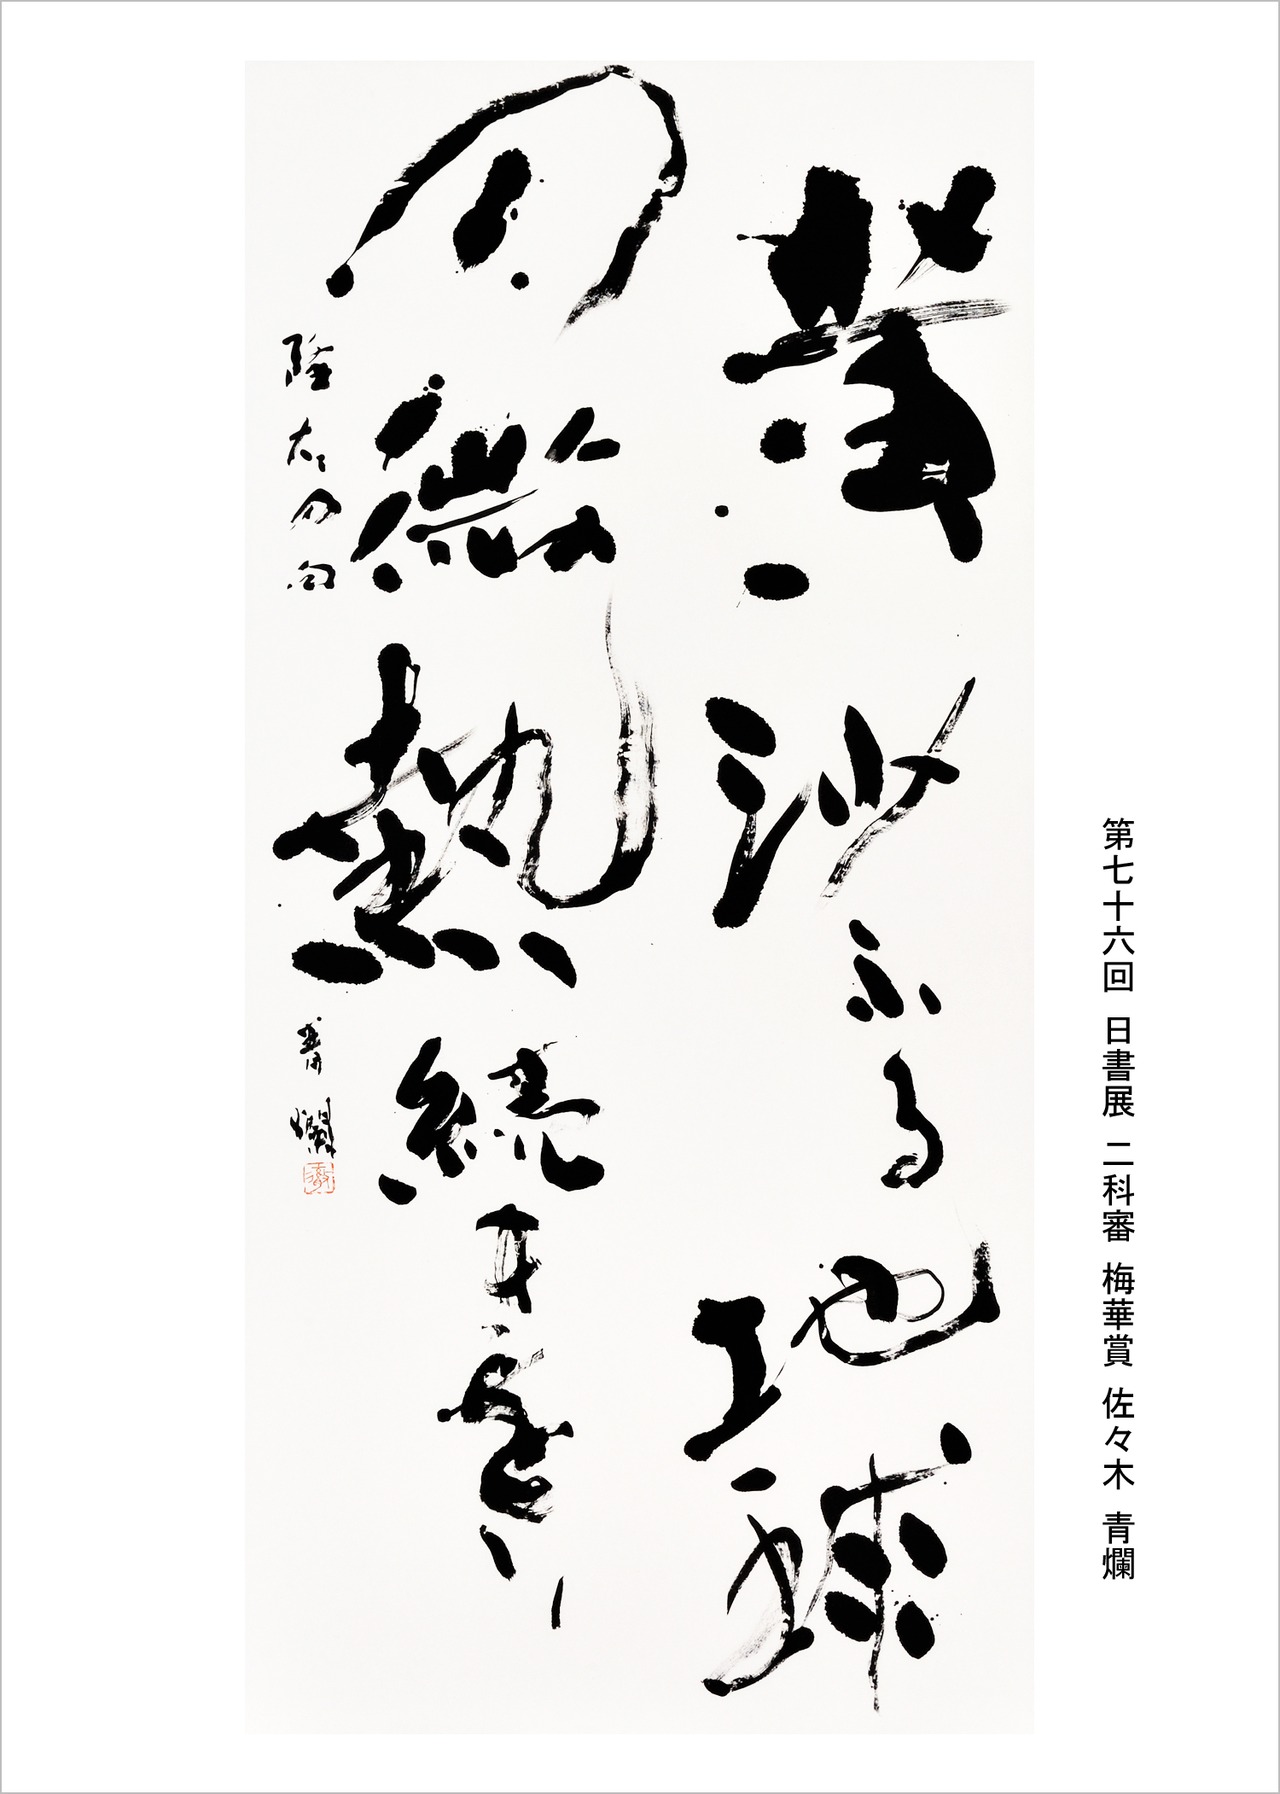 第七十六回 日書展 二科審 梅華賞 佐々木 青爛
黄沙ふる地球
の微熱続きをり
の句 青爛